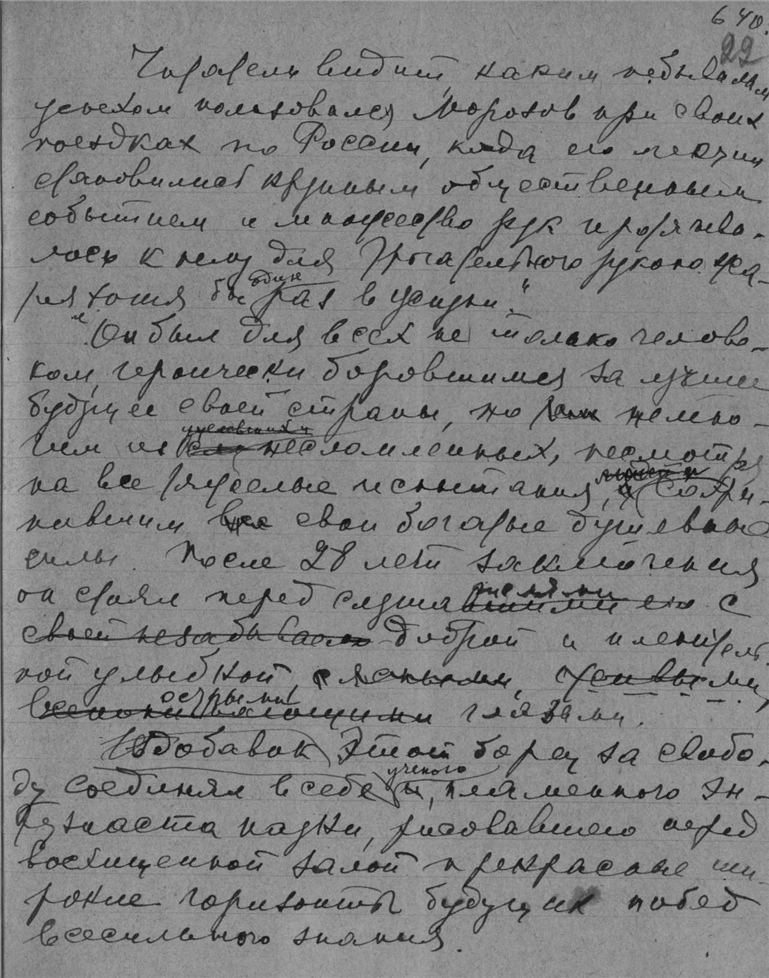 640.
22
Читатель видит, каким небывалым
успехом пользовался Морозов при своих
поездках по России, когда его лекции
становились крупным общественным
событием и множество рук протягива-
лось к нему для
ря хотя бы один раз в жизни."
"Он был для всех не только челове-
ком, героически боровшимся за лучшее
будущее своей страны, но немно-
гим из уцелевших и несломленных, несмотря
на все тяжелые испытания, сохра-
нившим все свои богатые душевные
силы. После 28 лет заключения
он стоял перед слушателями с
своей незабываемой доброй и пленитель-
ной улыбкой, с ясными,
острыми глазами.
Вдобавок Этот борец за свобо-
ду соединял в себе ученого и, пламенного эн-
тузиаста науки, рисовавшего перед
восхищенной залой прекрасные ши-
рокие горизонты будущих побед
всесильного знания.